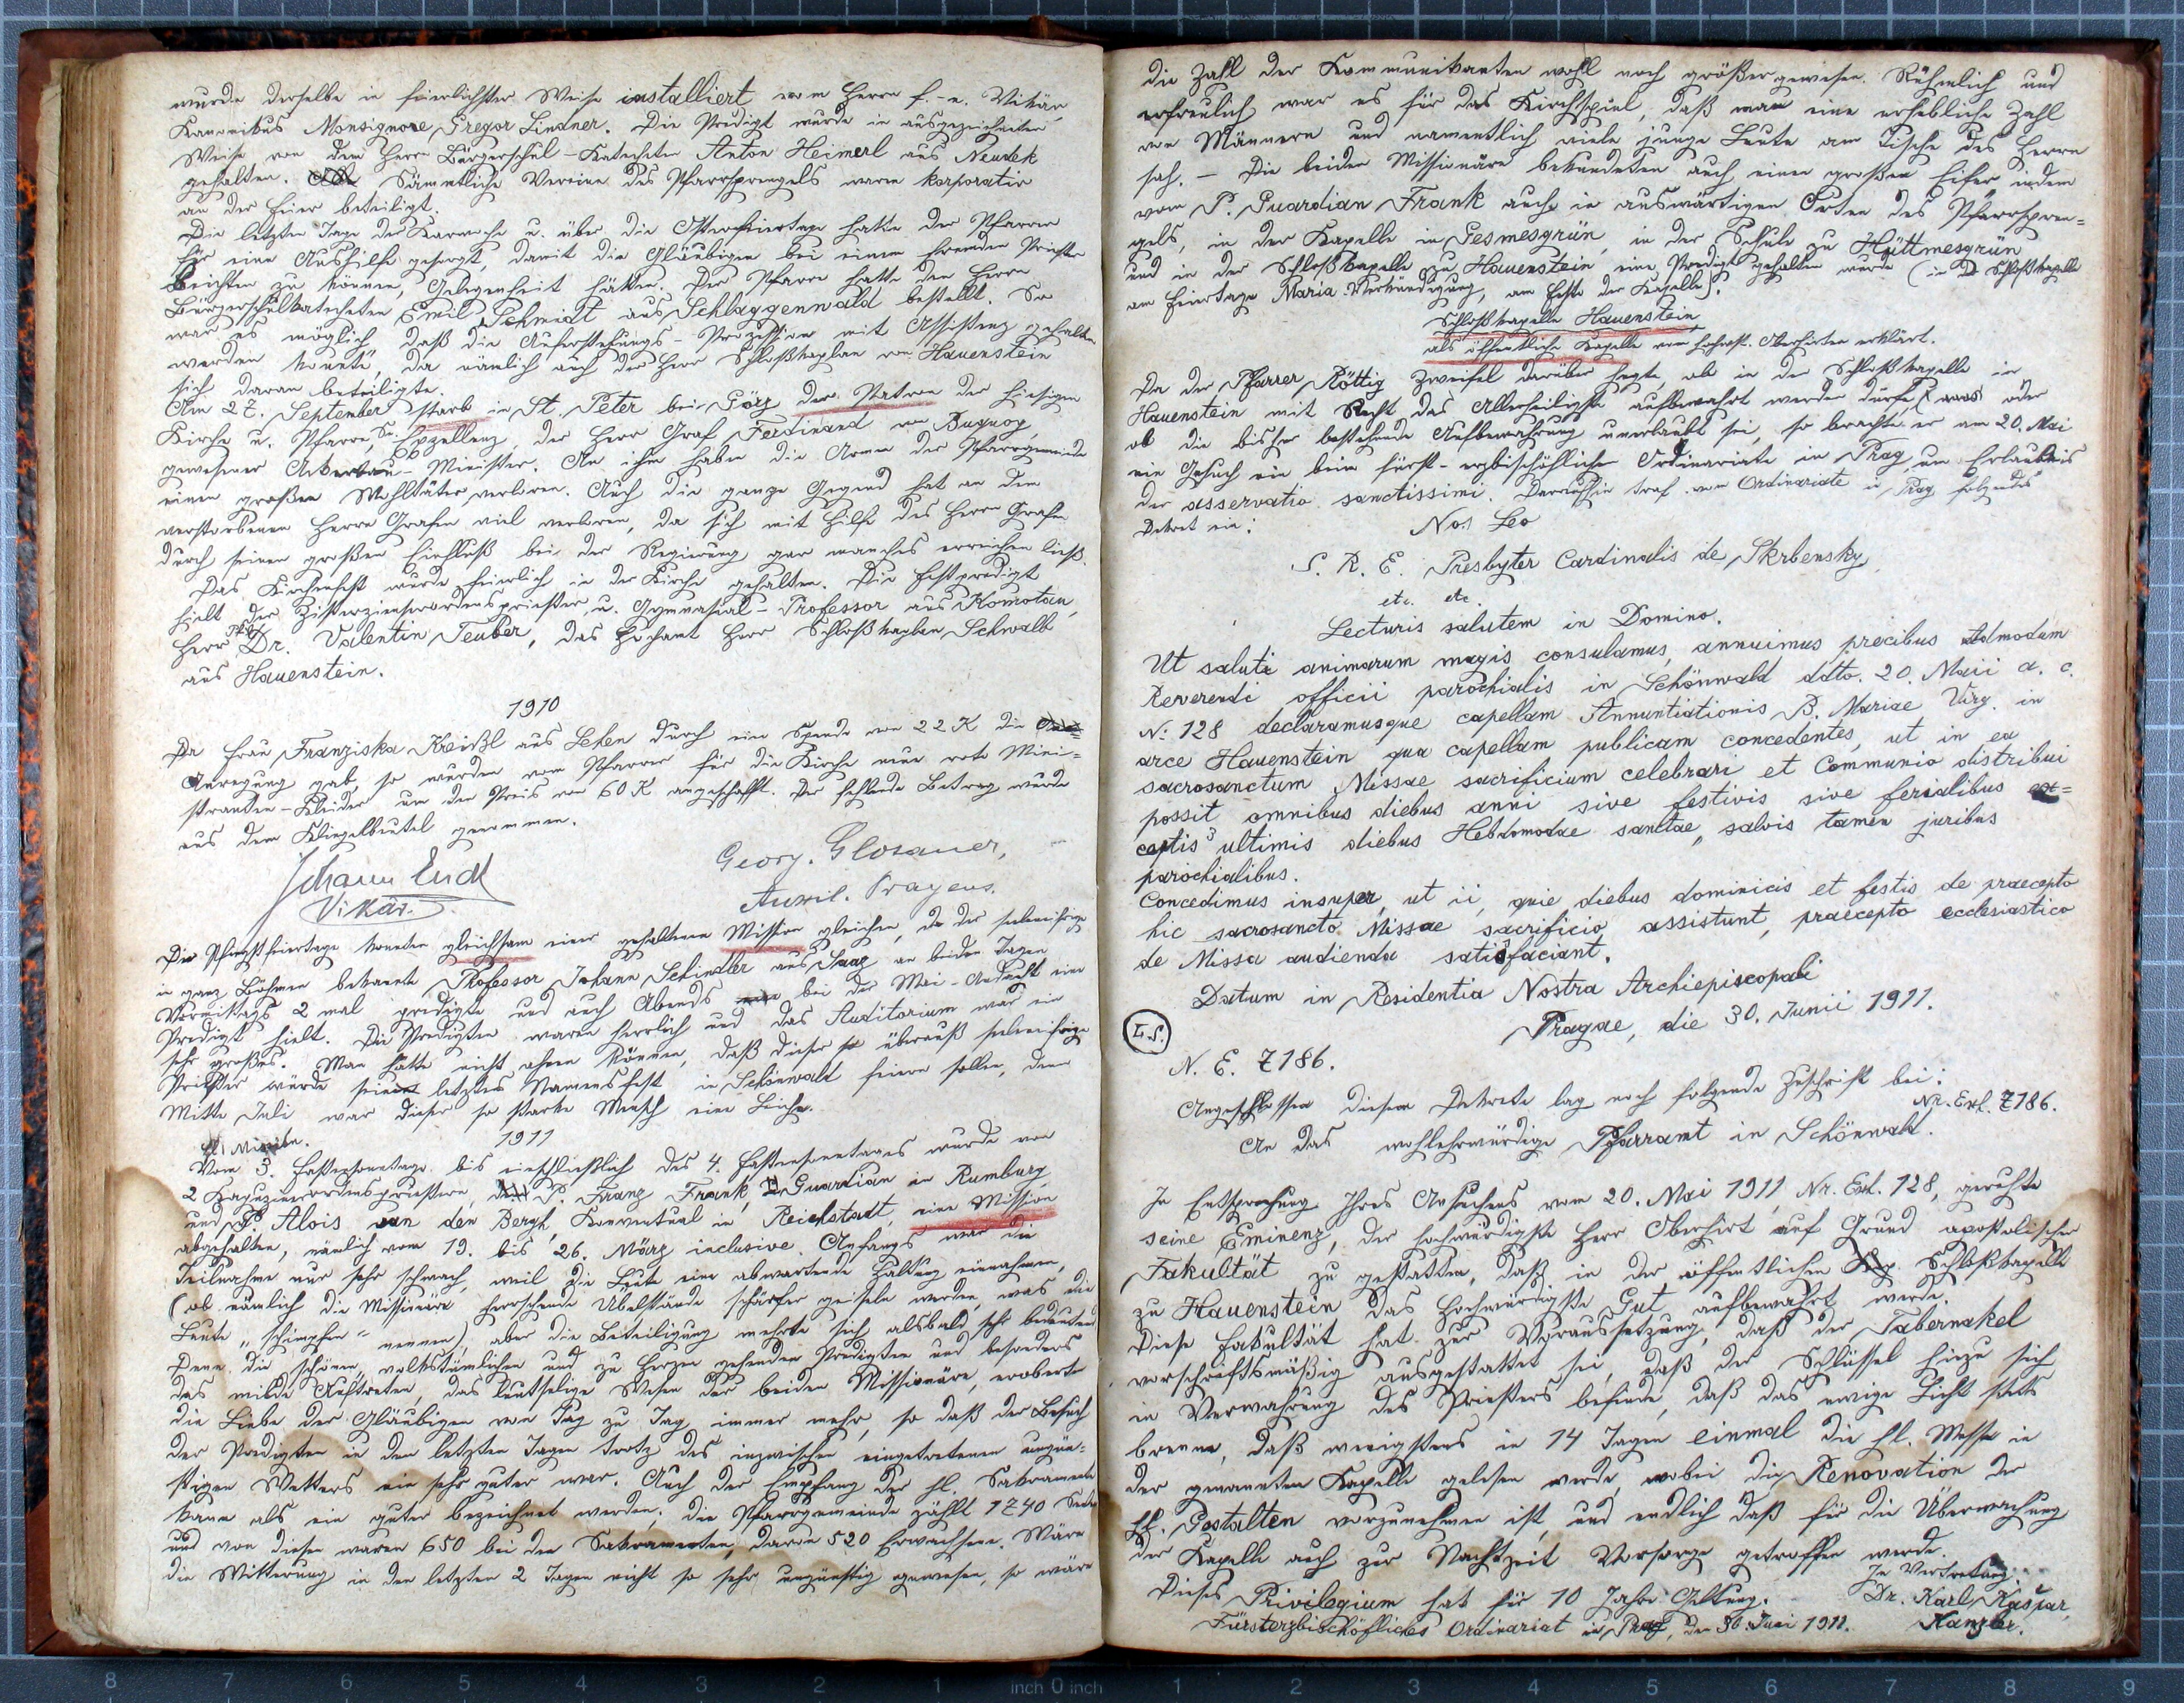 wurde derselbe in feierlichster Weise installiert vom Herrn f.-e. Vikär,
Kanonikus Monsignore Gregor Lindner. Die Predigt wurde in ausgezeichneter
Weise von dem Herrn Bürgerschul-Katecheten Anton Heimerl aus Neudek
gehalten. Sämmtliche Vereine des Pfarrsprengels waren korporativ
an der Feier beteiligt.
Die letzten Tage der Karwoche u. über die Osterfeiertage hatte der Pfarrer
für eine Aushilfe gesorgt, damit die Gläubigen bei einem fremden Priester
beichten zu können, Gelegenheit hätten. Der Pfarrer hatte den Herrn
Bürgerschulkatecheten Emil Schmidt aus Schlaggenwald bestellt. So
war es möglich, daß die Auferstehungs-Prozession mit Assistenz gehalten
werden konnte, da nämlich auch der Herr Schloßkaplan von Hauenstein
sich daran beteiligte.
Am 27. September starb in St. Peter bei Görz der Patron der hiesigen
Kirche u. Pfarre, Se. Exzellenz, der Herr Graf Ferdinand von Buquoy,
gewesener Ackerbau-Minister. An ihm haben die Armen der Pfarrgemeinde
einen großen Wohltäter verloren. Auch die ganze Gegend hat an dem
verstorbenen Herrn Grafen viel verloren, da sich mit Hilfe des Herrn Grafen
durch seinen großen Einfluß bei der Regierung gar manches erreichen ließ.
Das Kirchenfest wurde feierlich in der Kirche gehalten. Die Festpredigt
hielt der Zisterzienserordenspriester u. Gymnasial-Professor aus Komotau,
Herr Dr. Valentin Teuber, das Hochamt Herr Schloßkaplan Schwalb
aus Hauenstein.
1910
Da Frau Franziska Kreißl aus Lehen durch eine Spende von 22 K die
Anregung gab, so wurden vom Pfarrer für die Kirche neue rote Mini=
stranten-Kleider um den Preis von 60 K angeschafft. Der fehlende Betrag wurde
aus dem Klingelbeutel genommen.
Johann Endt
Vikär.
Georg. Glosauer,
Auxil. Pragens.
Die Pfingstfeiertage konnten gleichsam einer gehaltenen Mission gleichen, da der seeleneifrige
in ganz Böhmen bekannte Professor Johann Schindler aus Saaz an beiden Tagen
Vormittags 2 mal predigte und auch Abends bei der Mai-Andacht eine
Predigt hielt. Die Predigten waren herrlich und das Auditorium war ein
sehr großes. Man hätte nicht ahnen können, daß dieser so überaus seeleneifrige
Priester würde sein letztes Namensfest in Schönwald feiern sollen, denn
Mitte Juli war dieser so starke Mensch eine Leiche.
Mission. 1911
Vom 3. Fastensonntage bis einschließlich des 4. Fastensonntages wurde von
2 Kapuzinerordenspriestern, P. Franz Frank, Guardian in Rumburg
und P. Alois van den Bergh, Konventual in Reichstadt, eine Mission
abgehalten, nämlich vom 19. bis 26. März inclusive. Anfangs war die
Teilnahme nur sehr schwach, weil die Leute eine abwartende Haltung einnahmen,
(ob nämlich die Missionäre herrschende Übelstände schärfer geiseln werden, was die
Leute „schimpfen" nennen), aber die Beteiligung mehrte sich alsbald sehr bedeutend.
Denn die schönen, volkstümlichen und zu Herzen gehenden Predigten und besonders
das milde Auftreten, das leutselige Wesen der beiden Missionäre, eroberte
die Liebe der Gläubigen von Tag zu Tag immer mehr, so daß der Besuch
der Predigten in den letzten Tagen trotz des inzwischen eingetretenen ungün=
stigen Wetters ein sehr guter war. Auch der Empfang der hl. Sakramente
kann als ein guter bezeichnet werden; die Pfarrgemeinde zählt 1740 Seelen
und von diesen waren 650 bei den Sakramenten, davon 520 Erwachsene. Wäre
die Witterung in den letzten 2 Tagen nicht so sehr ungünstig gewesen, so wäre
die Zahl der Kommunikanten wohl noch größer gewesen. Rühmlich und
erfreulich war es für das Kirchspiel, daß man eine erhebliche Zahl
von Männern und namentlich viele junge Leute am Tische des Herrn
sah. – Die beiden Missionäre bekundeten auch einen großen Eifer indem
vom P. Guardian Frank auch in auswärtigen Orten des Pfarrspren=
gels, in der Kapelle in Gesmesgrün, in der Schule zu Hüttmesgrün
und in der Schloßkapelle zu Hauenstein eine Predigt gehalten wurde (in der Schloßkapelle
am Feiertage Maria Verkündigung, am Feste der Kapelle).
Schloßkapelle Hauenstein
als öffentliche Kapelle vom hochwst. Oberhirten erklärt.
Da der Pfarrer Röttig Zweifel darüber hegte, ob in der Schloßkapelle in
Hauenstein mit Recht das Allerheiligste aufbewahrt werden dürfe, oder
ob die bisher bestehende Aufbewahrung unerlaubt sei, so brachte er am 20. Mai
ein Gesuch ein beim fürst-erzbischöflichen Ordinariate in Prag um Erlaubnis
der asservatio sanctissimi. Daraufhin traf vom Ordinariate in Prag folgendes
Dekret ein:
Nos Leo
S. R. E. Presbyter Cardinalis de Skrbensky,
etc. etc.
Lecturis salutem in Domino.
Ut saluti animarum magis consulamus, annuimus precibus Admodum
Reverendi officii parochialis in Schönwald ddto. 20. Maii a. c.
N: 128 declaramusque capellam Annuntiationis B. Mariae Virg. in
arce Hauenstein qua capellam publicam concedentes, ut in ea
sacrosanctum Missae sacrificium celebrari et Communio distribui
possit omnibus diebus anni sive festivis sive ferialibus ex=
ceptis 3 ultimis diebus Hebdomodae sanctae, salvis tamen juribus
parochialibus.
Concedimus insuper, ut ii, quie diebus dominicis et festis de praecepto
hic sacrosancto Missae sacrificio assistunt, praecepto ecclesiastico
de Missa audienda satisfaciant.
Datum in Residentia Nostra Archiepiscopali
Pragae, die 30. Junii 1911.
L.S.
N. E. 7186.
Angeschlossen diesem Dekrete lag noch folgende Zuschrift bei:
Nr. Exh. 7186.
An das wohlehrwürdige Pfarramt in Schönwald.
In Entsprechung Ihres Ansuchens vom 20. Mai 1911, Nr. Exh. 128, geruhte
seine Eminenz, der hochwürdigste Herr Oberhirt auf Grund apostolischer
Fakultät zu gestatten, daß in der öffentlichen Schloßkapelle
zu Hauenstein das Hochwürdigste Gut aufbewahrt werde.
Diese Fakultät hat zur Voraussetzung, daß der Tabernakel
vorschriftsmäßig ausgestattet sei, daß der Schlüssel hiezu sich
in Verwahrung des Priesters befinde, daß das ewige Licht stets
brenne, daß wenigstens in 14 Tagen einmal die hl. Messe in
der genannten Kapelle gelesen werde, wobei die Renovation der
hl. Gestalten vorzunehmen ist, und endlich daß für die Überwachung
der Kapelle auch zur Nachtzeit Vorsorge getroffen werde.
Dieses Privilegium hat für 10 Jahre Geltung.
In Vertretung:
Dr. Karl Kašpar,
Fürsterzbischöfliches Ordinariat in Prag, den 30. Juni 1911. Kanzler.
8 7 6 5 4 3 2 1 inch 0 inch 1 2 3 4 5 6 7 8 9